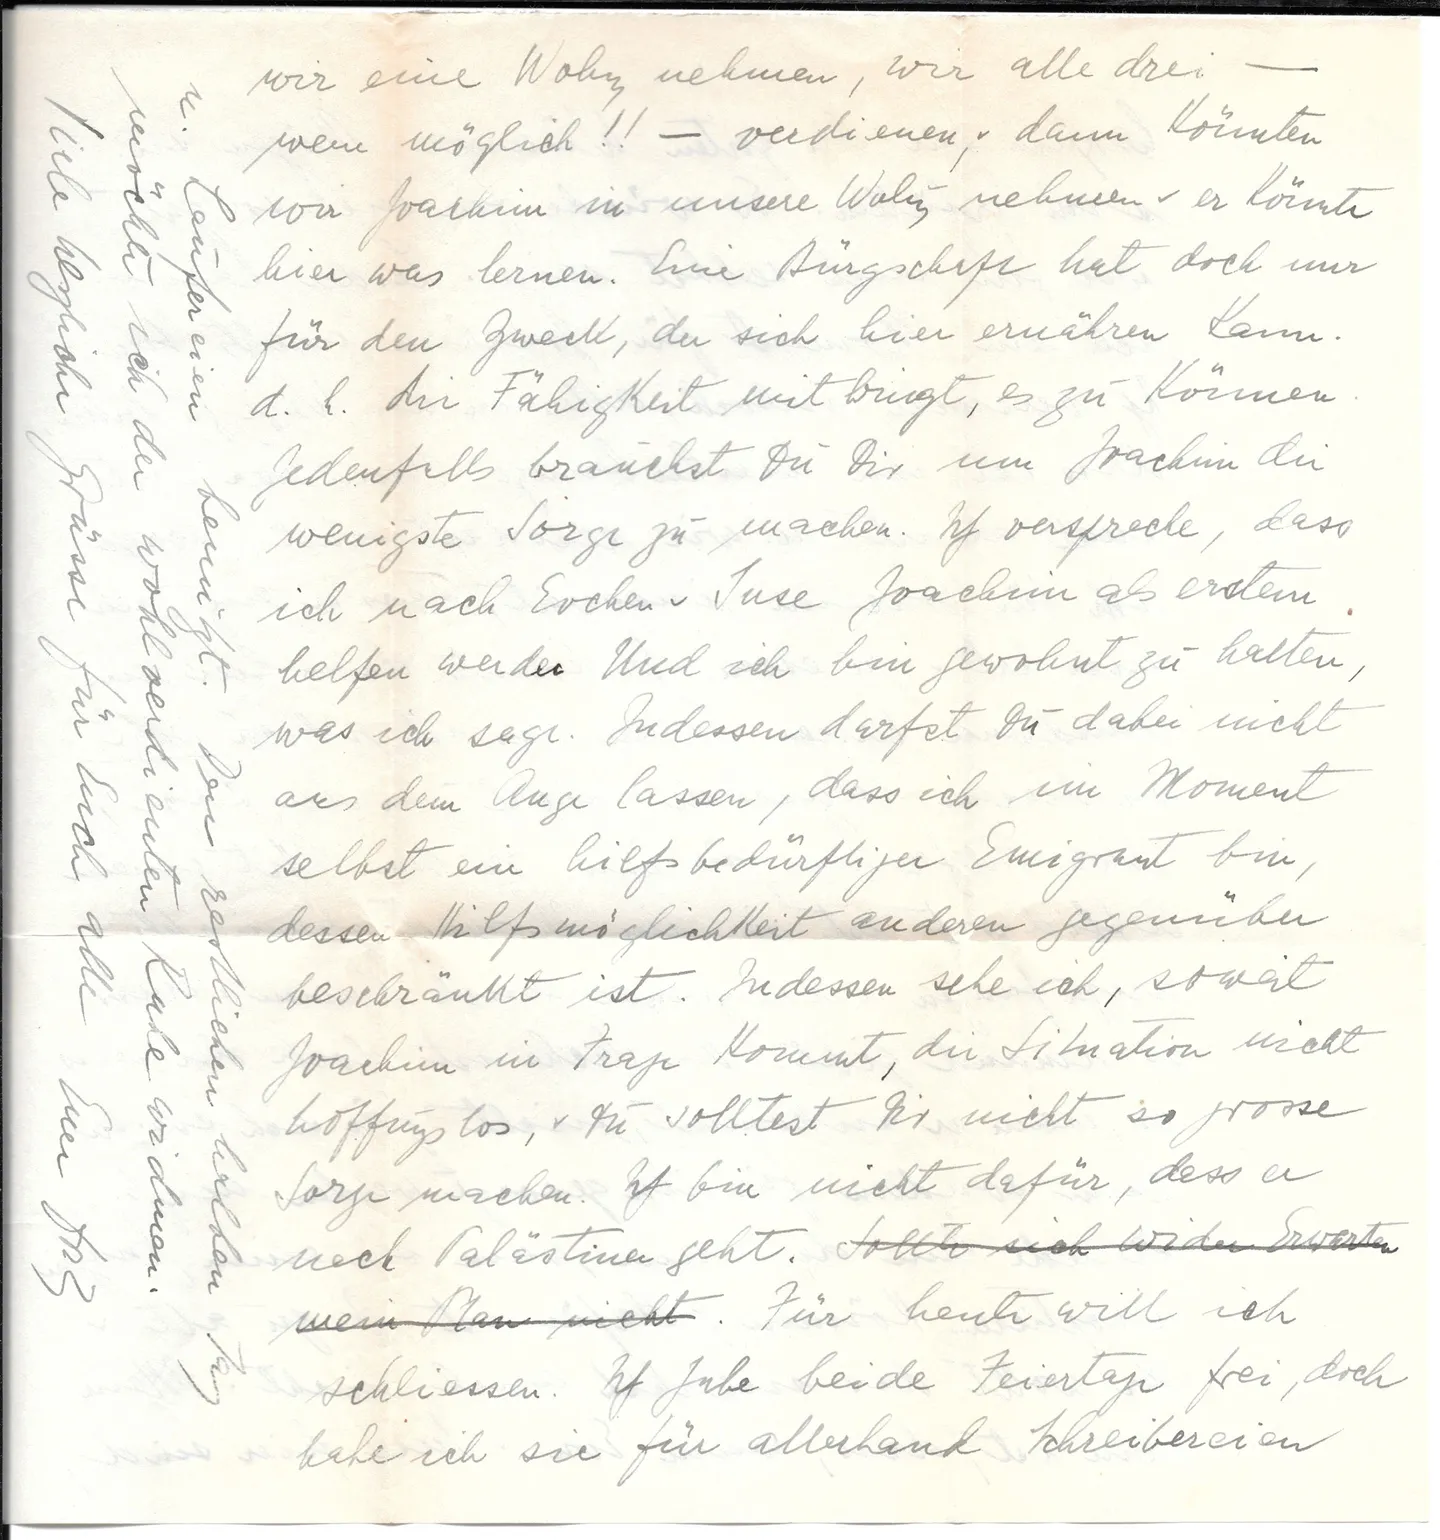 wir eine Wohng nehmen, wir alle drei —
wenn möglich!! — verdienen, u. dann könnten
wir Joachim in unsere Wohng nehmen u. er könnte
hier was lernen. Eine Bürgschaft hat doch nur
für den Zweck, der sich hier ernähren kann.
d. h. die Fähigkeit mitbringt, es zu können.
Jedenfalls brauchst Du Dir um Joachim die
wenigste Sorge zu machen. Ich verspreche, dass
ich nach Evchen u. Suse Joachim als erstem
helfen werde. Und ich bin gewohnt zu halten,
was ich sage. Indessen darfst Du dabei nicht
aus dem Auge lassen, dass ich im Moment
selbst ein hilfsbedürftiger Emigrant bin,
dessen Hilfsmöglichkeit anderen gegenüber
beschränkt ist. Indessen sehe ich, soweit
Joachim in Frage kommt, die Situation nicht
hoffngslos, u. Du solltest Dir nicht so grosse
Sorge machen. Ich bin nicht dafür, dass er
nach Palästina geht. Sollte sich wider Erwarten
mein Plan nicht. Für heute will ich
schliessen. Ich habe beide Feiertage frei, doch
habe ich sie für allerhand Schreibereien
u. Laufereien benutzt. Den restlichen halben Tag
möchte ich der wohlverdienten Ruhe widmen.
Viele herzliche Grüsse für Euch alle Euer